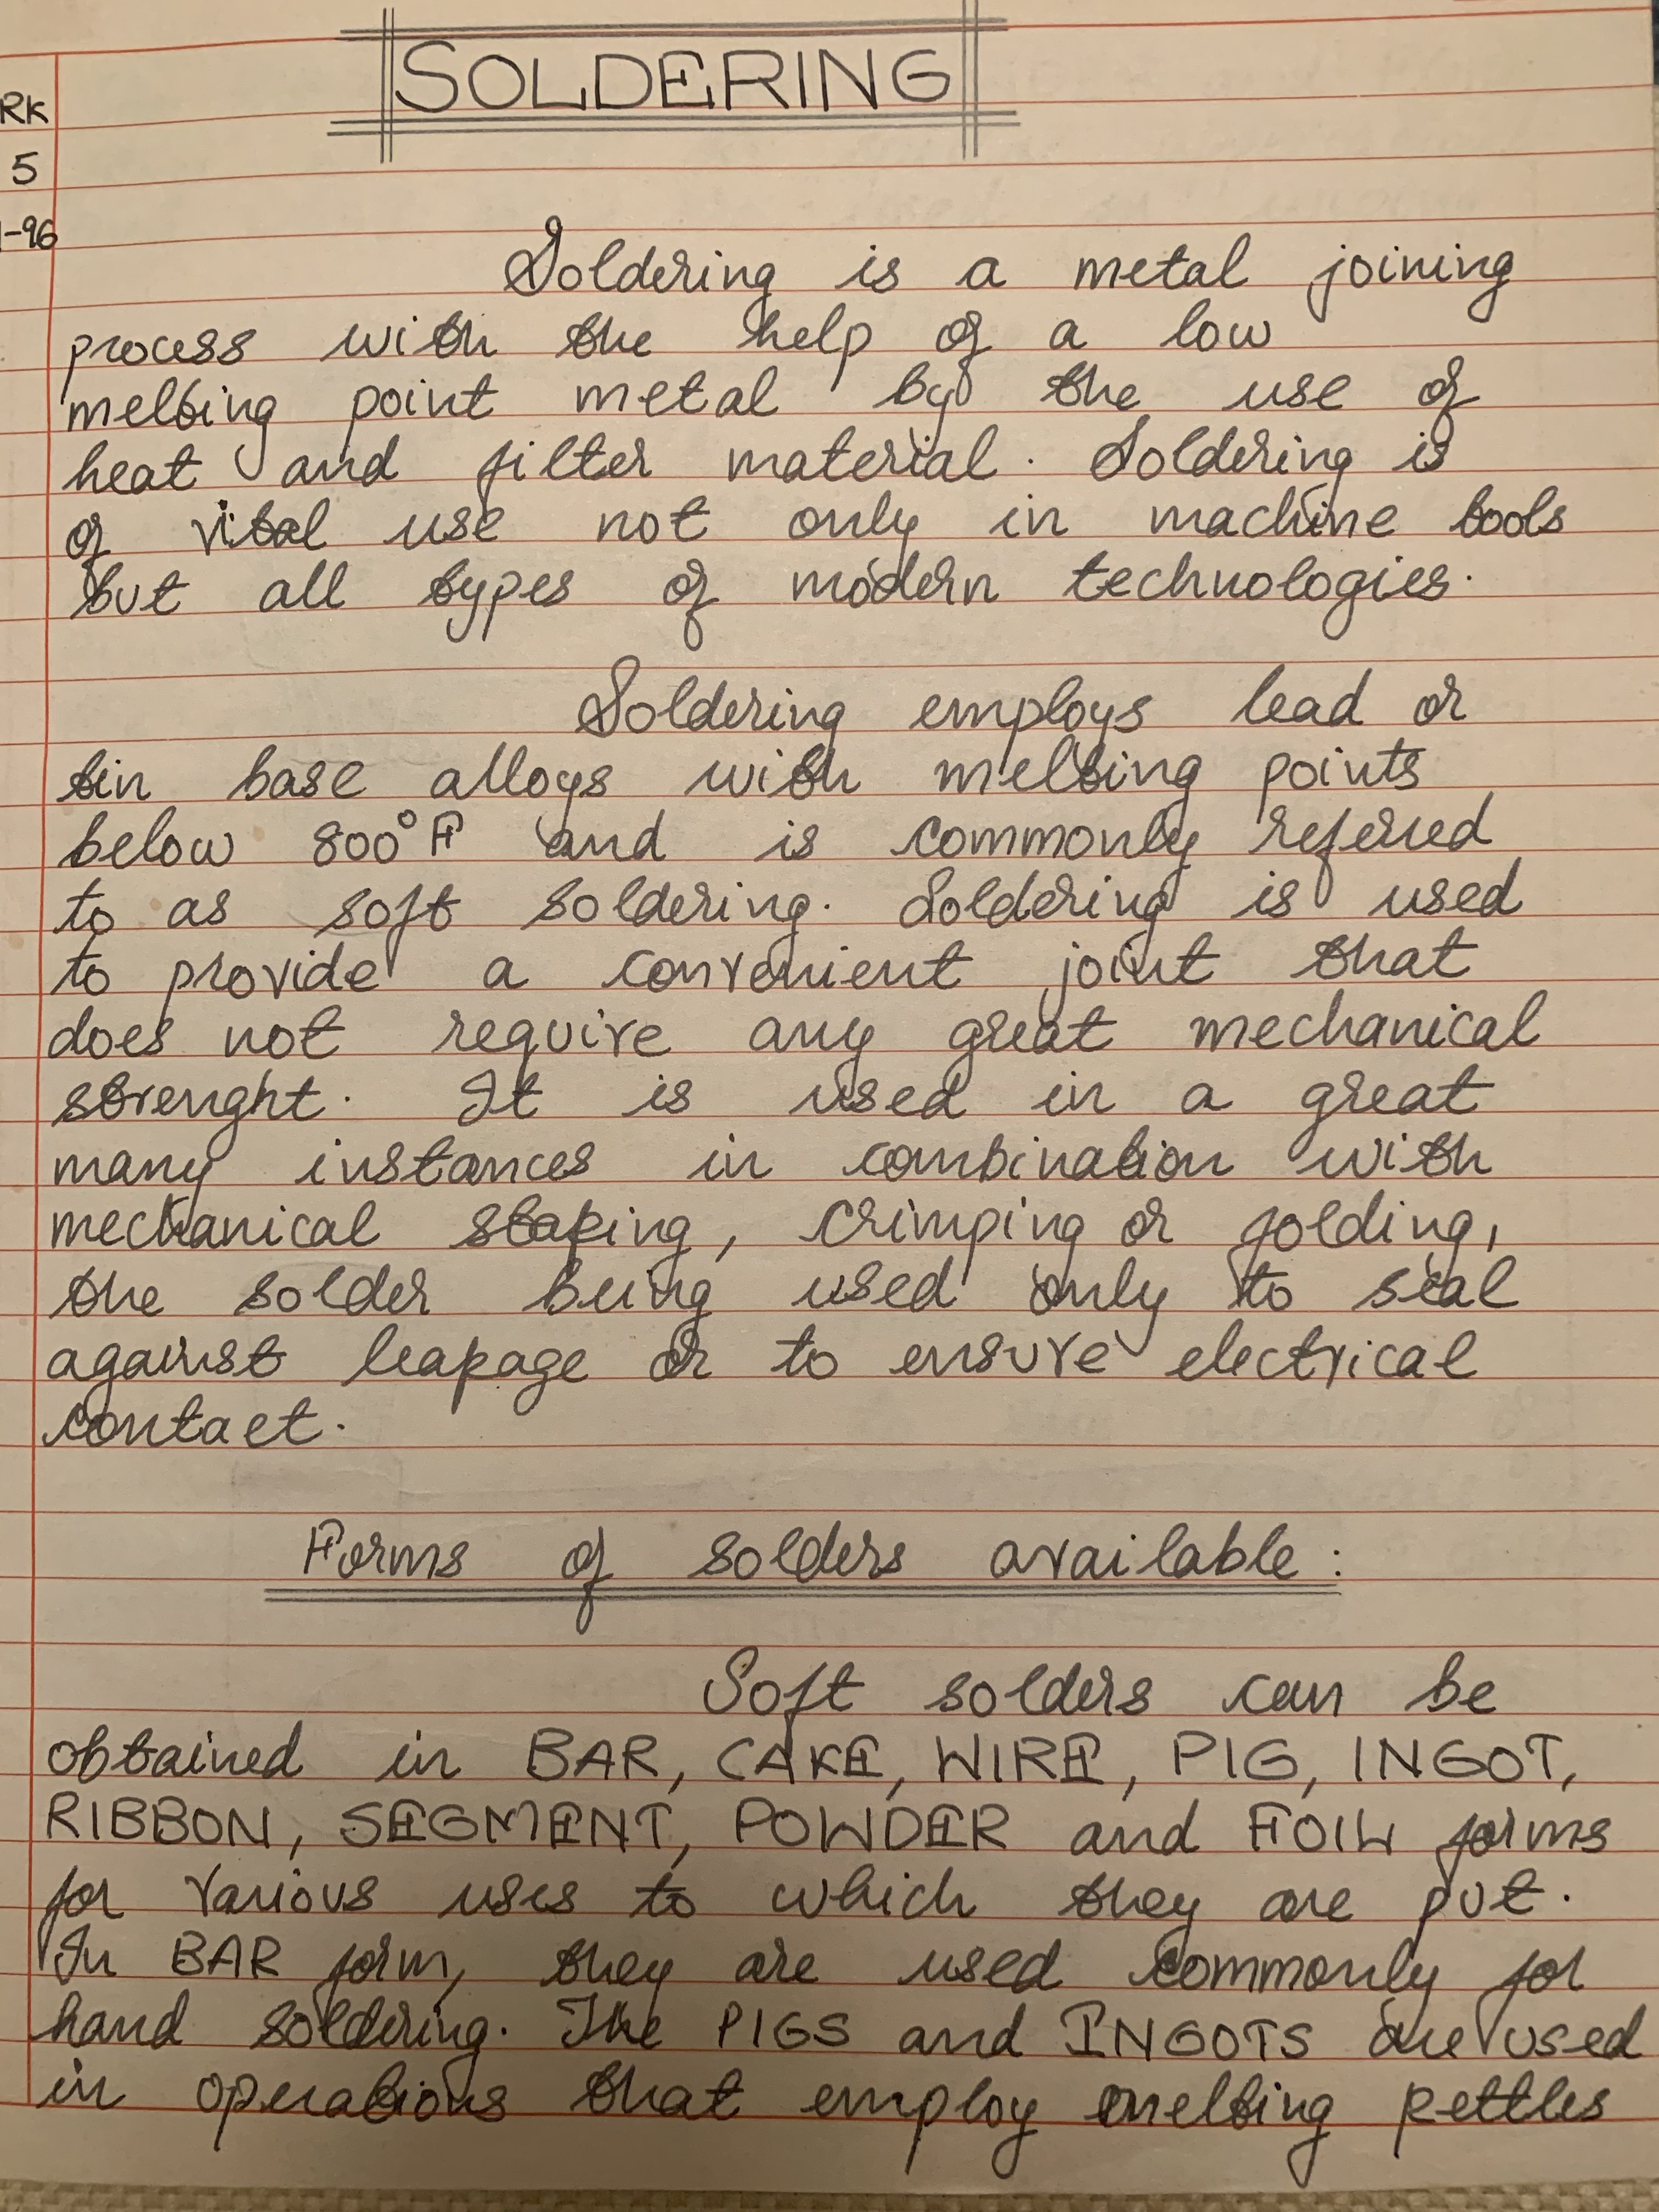 SOLDERING
RK
5
-96
Soldering is a metal joining
process with the help of a low
melting point metal by the use of
heat and filter material. Soldering is
of vital use not only in machine tools
but all types of modern technologies.
Soldering employs lead or
tin base alloys with melting points
below 800°F and is commonly referred
to as soft soldering. Soldering is used
to provide a convenient joint that
does not require any great mechanical
strenght. It is used in a great
many instances in combination with
mechanical staking, crimping or folding,
the solder being used only to seal
against leakage or to ensure electrical
contact.
Forms of solders available:
Soft solders can be
obtained in BAR, CAKE, WIRE, PIG, INGOT,
RIBBON, SEGMENT, POWDER and FOIL forms
for various uses to which they are put.
In BAR form, they are used commonly for
hand soldering. The PIGS and INGOTS are used
in operations that employ melting kettles